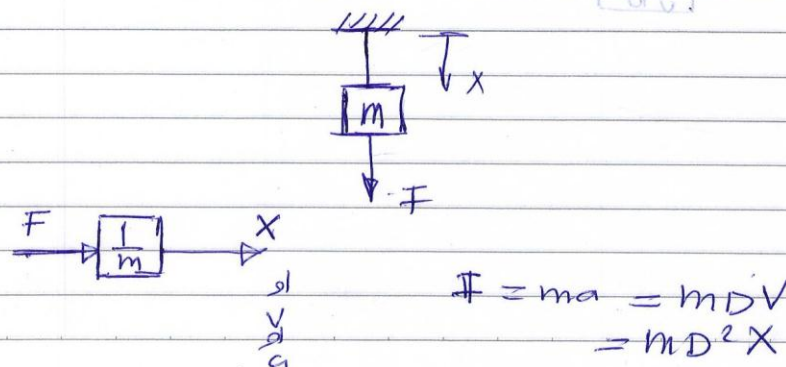 x
m
F
F
1/m
X
V
a
F = ma = mDV
= mD²X